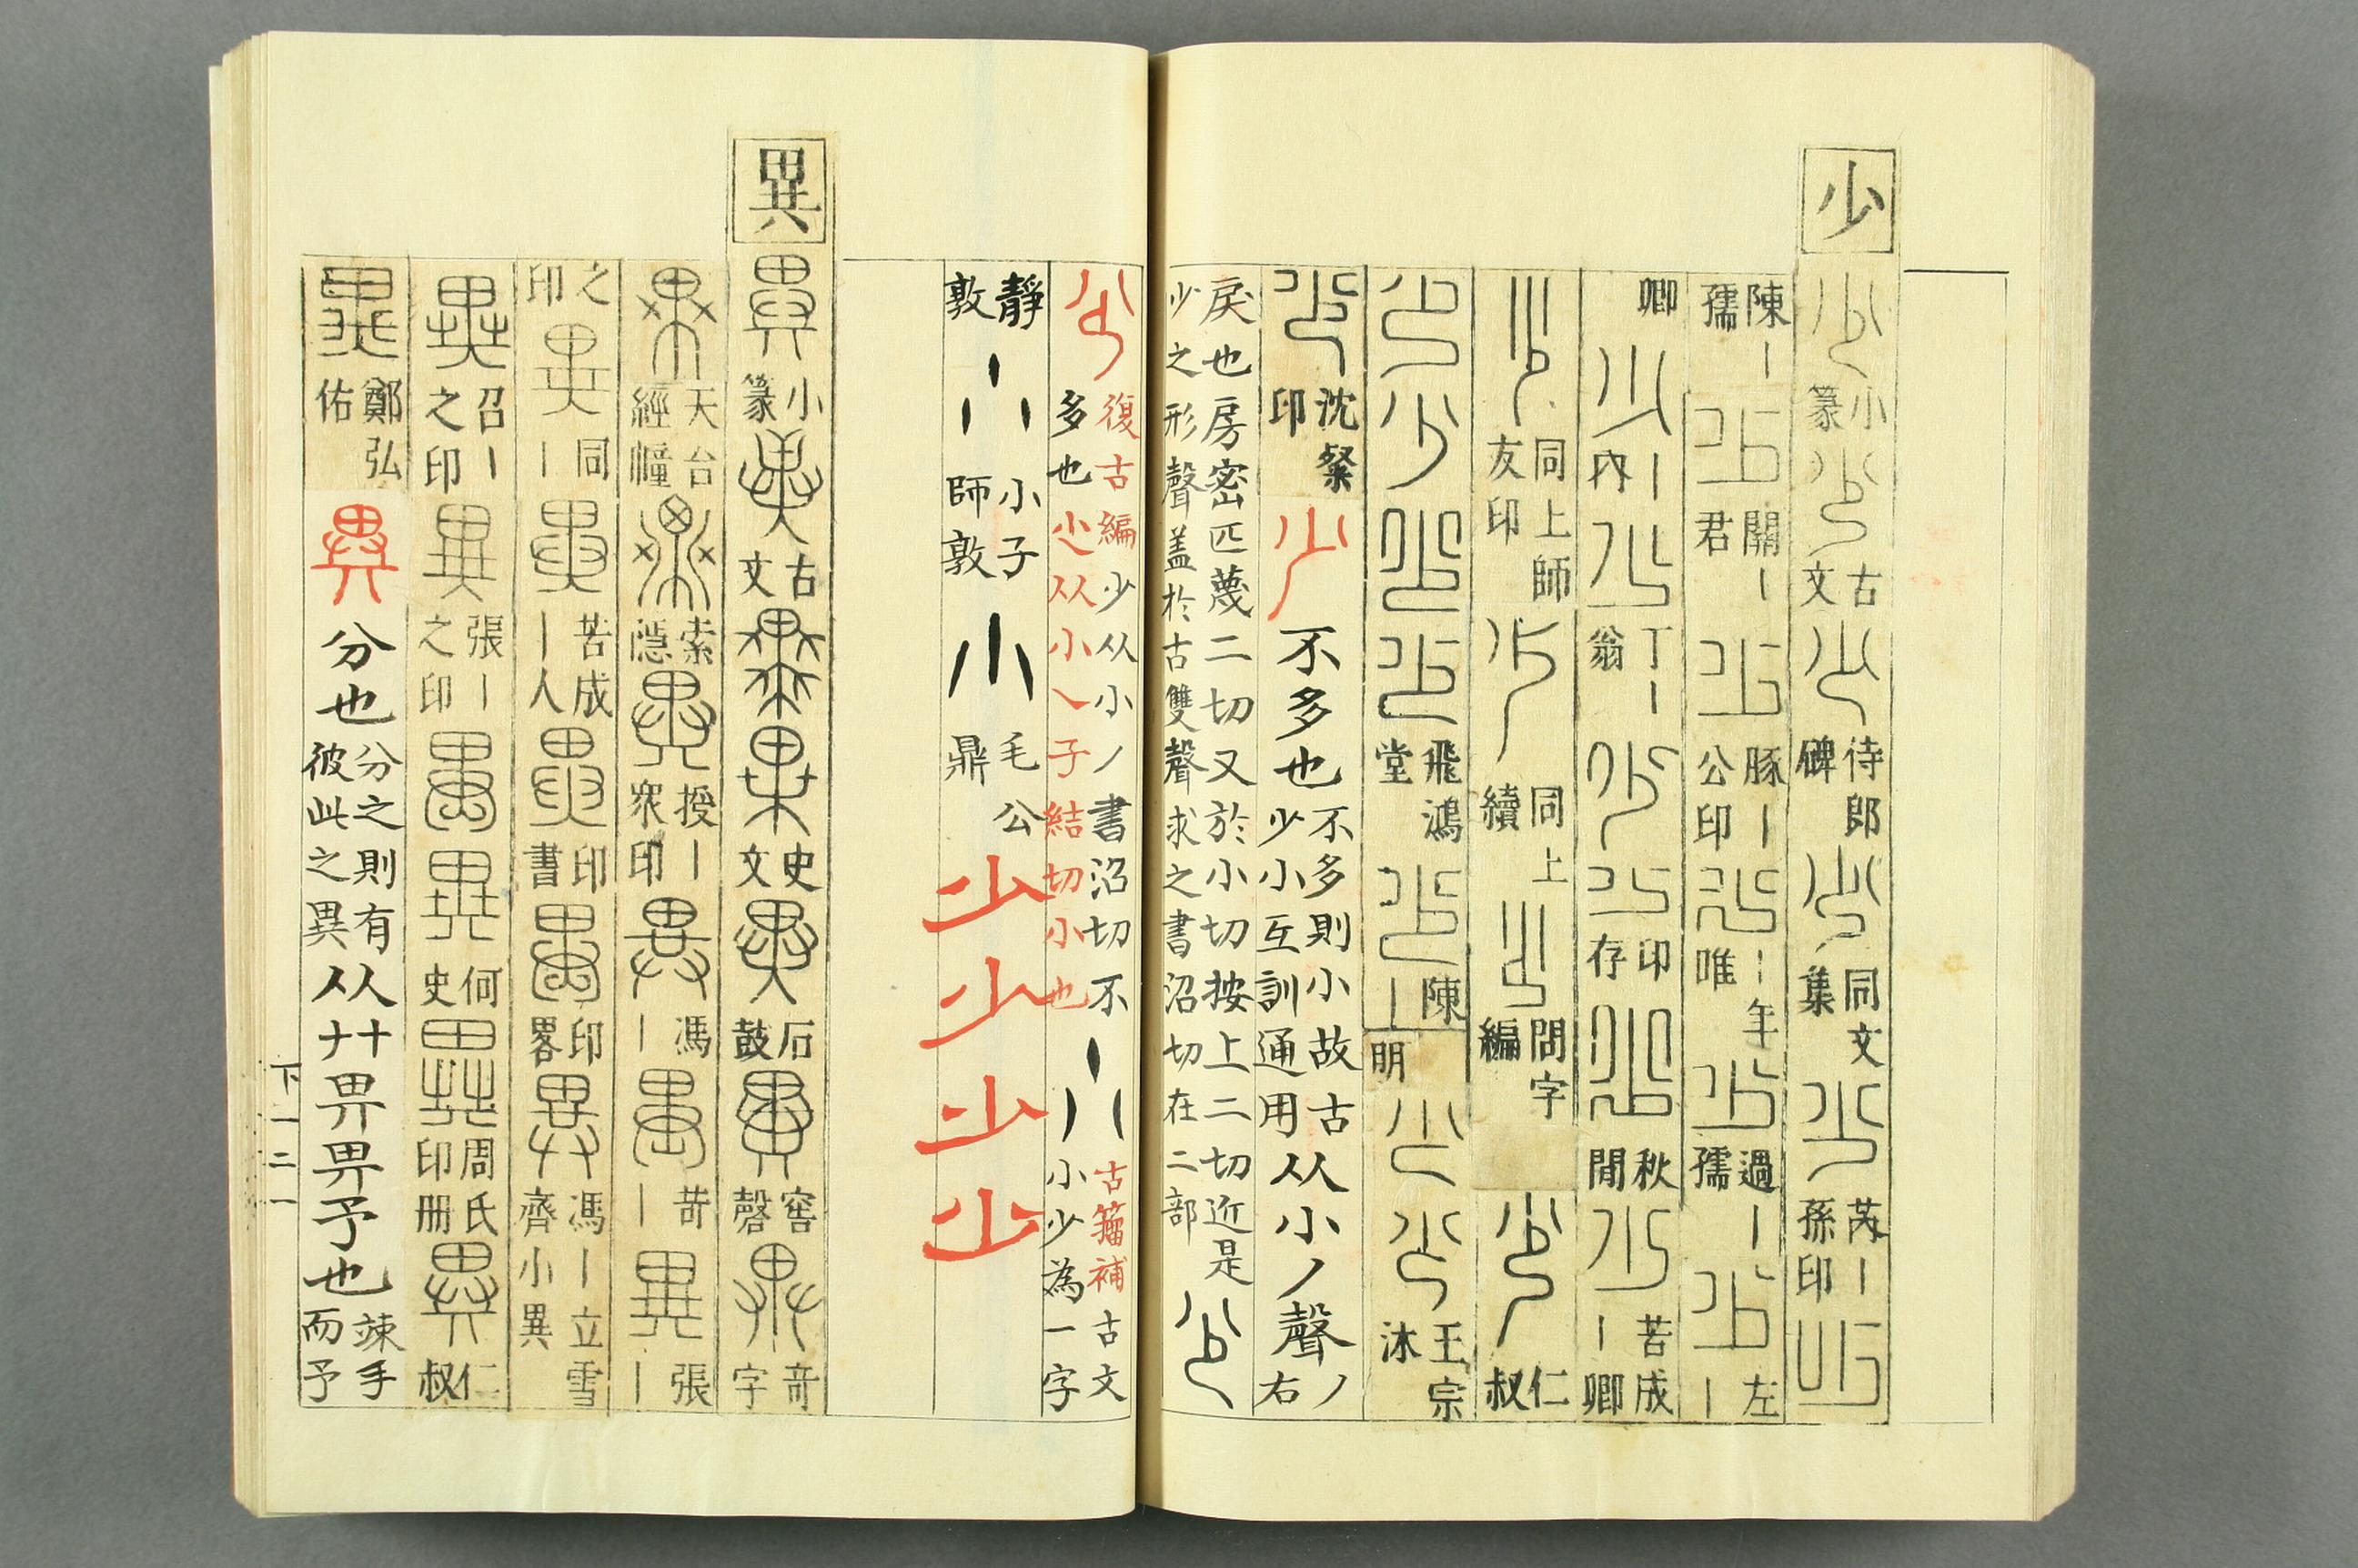 少
小篆
古文
侍郎碑
同文集
芮｜孫印
陳｜孺
關｜君
豚｜公印
｜年唯
過｜孺
左｜
卿
｜內
丁｜翁
印存
秋閒
苦成｜卿
同上師友印
同上續
問字編
仁叔
飛鴻堂
陳｜
明
王宗沐
沈粲印
不多也
不多則小故古少小互訓通用
从小丿聲
丿右戾也房密匹蔑二切又於小切按上二切近是
少之形聲蓋於古雙聲求之書沼切在二部
復古編
少从小丿書沼切不多也
少从小乀子結切小也
古籀補
古文小少為一字
靜敦
小子師敦
毛公鼎
少
少
少
少
異
小篆
古文
史文
石鼓
窖磬
奇字
天台經幢
索隱
授｜眾印
馮｜
苛｜
張｜
之印
同｜
苦成｜人
印書
印畧
馮｜立
雪齊小異
召｜之印
張｜之印
何史
周氏印冊
仁叔
鄭弘佑
異
分也
分之則有彼此之異
从廾畀畀予也
竦手而予
下一二一